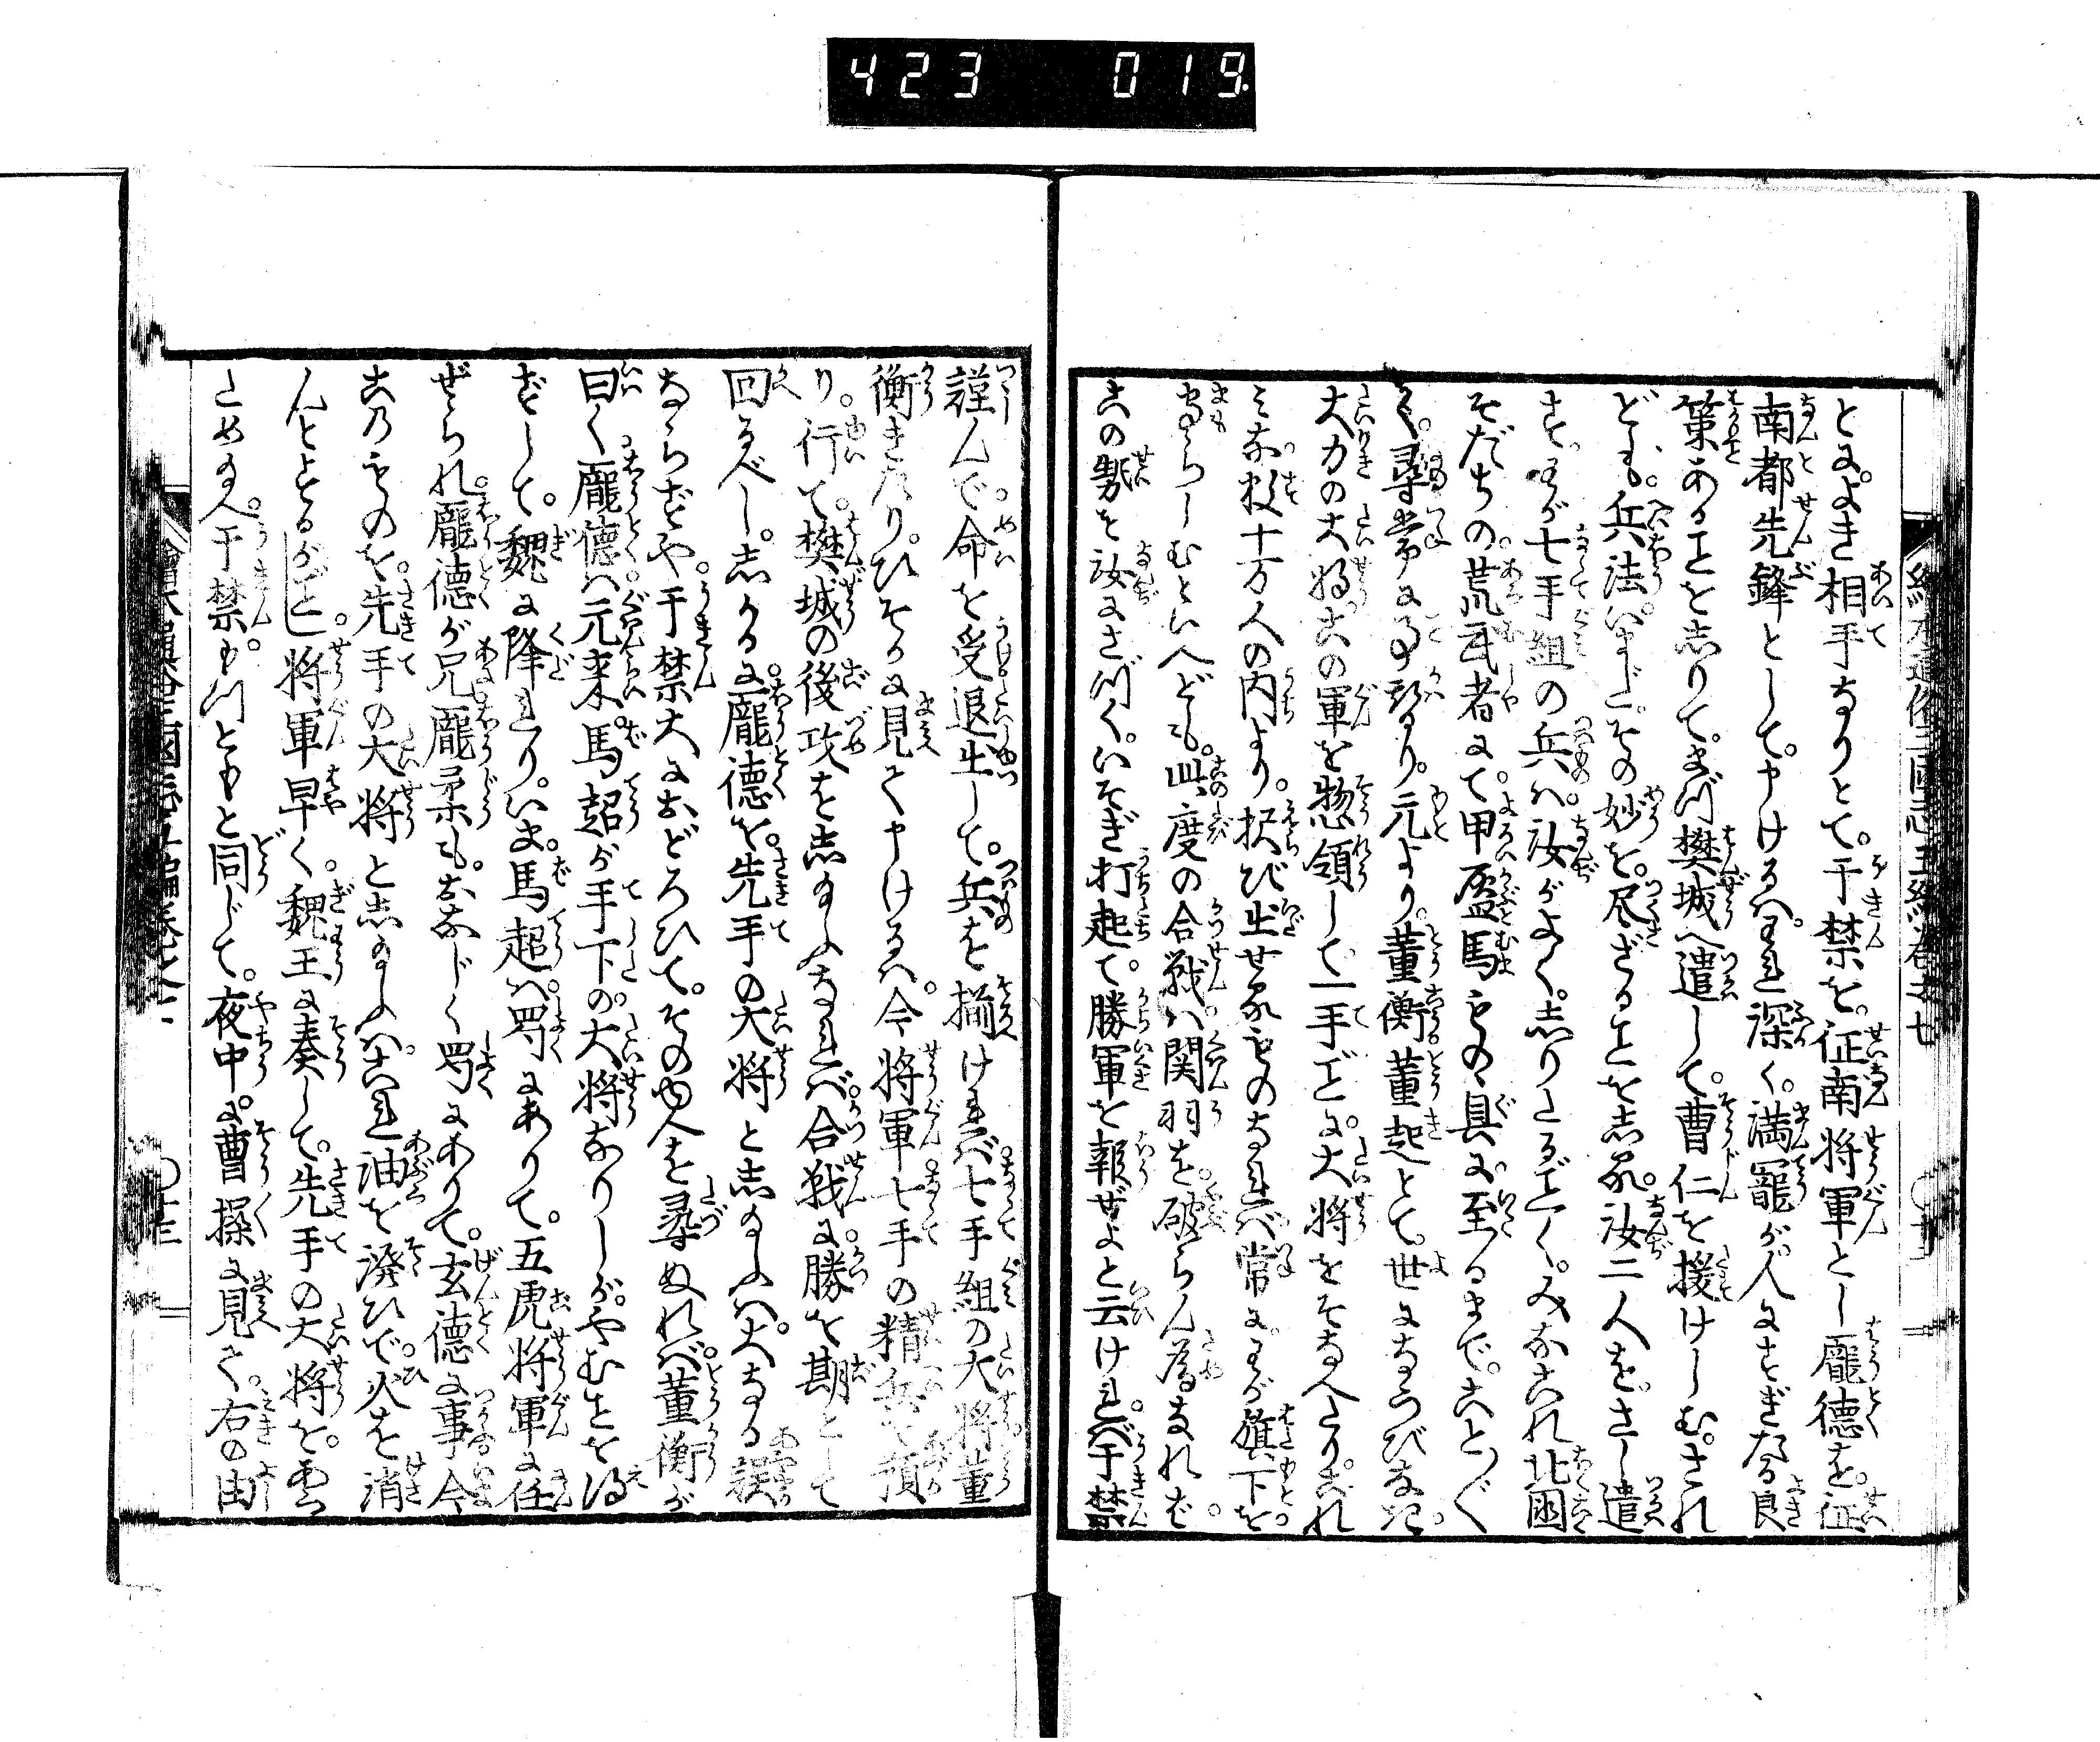 423 019
とに。よき相手なりとて。于禁を。征南将軍とし龐徳を。征
南都先鋒として。申けるハ。われ深く。満寵が人にすぎたる良
策あることを志りて。まづ樊城へ遣して。曹仁を援けしむ。され
ども。兵法いまだ。その妙を。尽ざることを志る。汝二人を。さし遣
す。わが七手組の兵ハ。汝がよく。志りたるごとく。みなこれ北国
そだちの。荒武者にて。甲盔馬もの具に。至るまで。ことごと
く。尋常に事替り。元より。董衡董起とて。世にならびなき。
大力の大将。この軍を惣領して。一手ごとに。大将をそなへたり。これ
みな数十万人の内より。択び出せるものなれバ。常に。わが旗下を。
守らしむといへども。此度の合戦ハ。関羽を。破らん為なれバ。
この勢を汝にさづく。いそぎ打起て。勝軍を報ぜよと云けれバ。于禁
謹んで。命を受退出して。兵を揃けれバ。七手組の大将董
衡きたり。ひそかに見えて申けるハ。今将軍七手の精兵を預
り。行て。樊城の後攻を志給ふなれバ。合戦に勝を期として
回るべし。志かるに。龐徳を。先手の大将と志給ふハ。大なる誤
ならずや。于禁大におどろひて。そのゆへを尋ぬれバ。董衡が
曰く。龐徳ハ元来。馬超が手下の。大将なりしが。やむことを得
ずして。魏に降れり。いま。馬超ハ。蜀にありて。五虎将軍に任
ぜられ。龐徳が兄龐柔も。おなじく蜀にありて。玄徳に事今
このものを。先手の大将と志給ふハ。これ油を潑ひで。火を消
んとするがごとし。将軍早く。魏王に奏して。先手の大将を。替
ため給へ。于禁。もつとも と同じて。夜中に。曹操に見えて。右の由